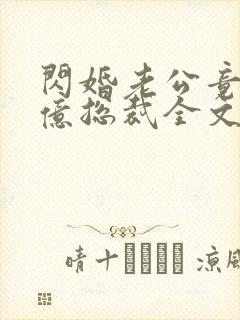 閃婚老公竟
億總裁全文
晴十 涼